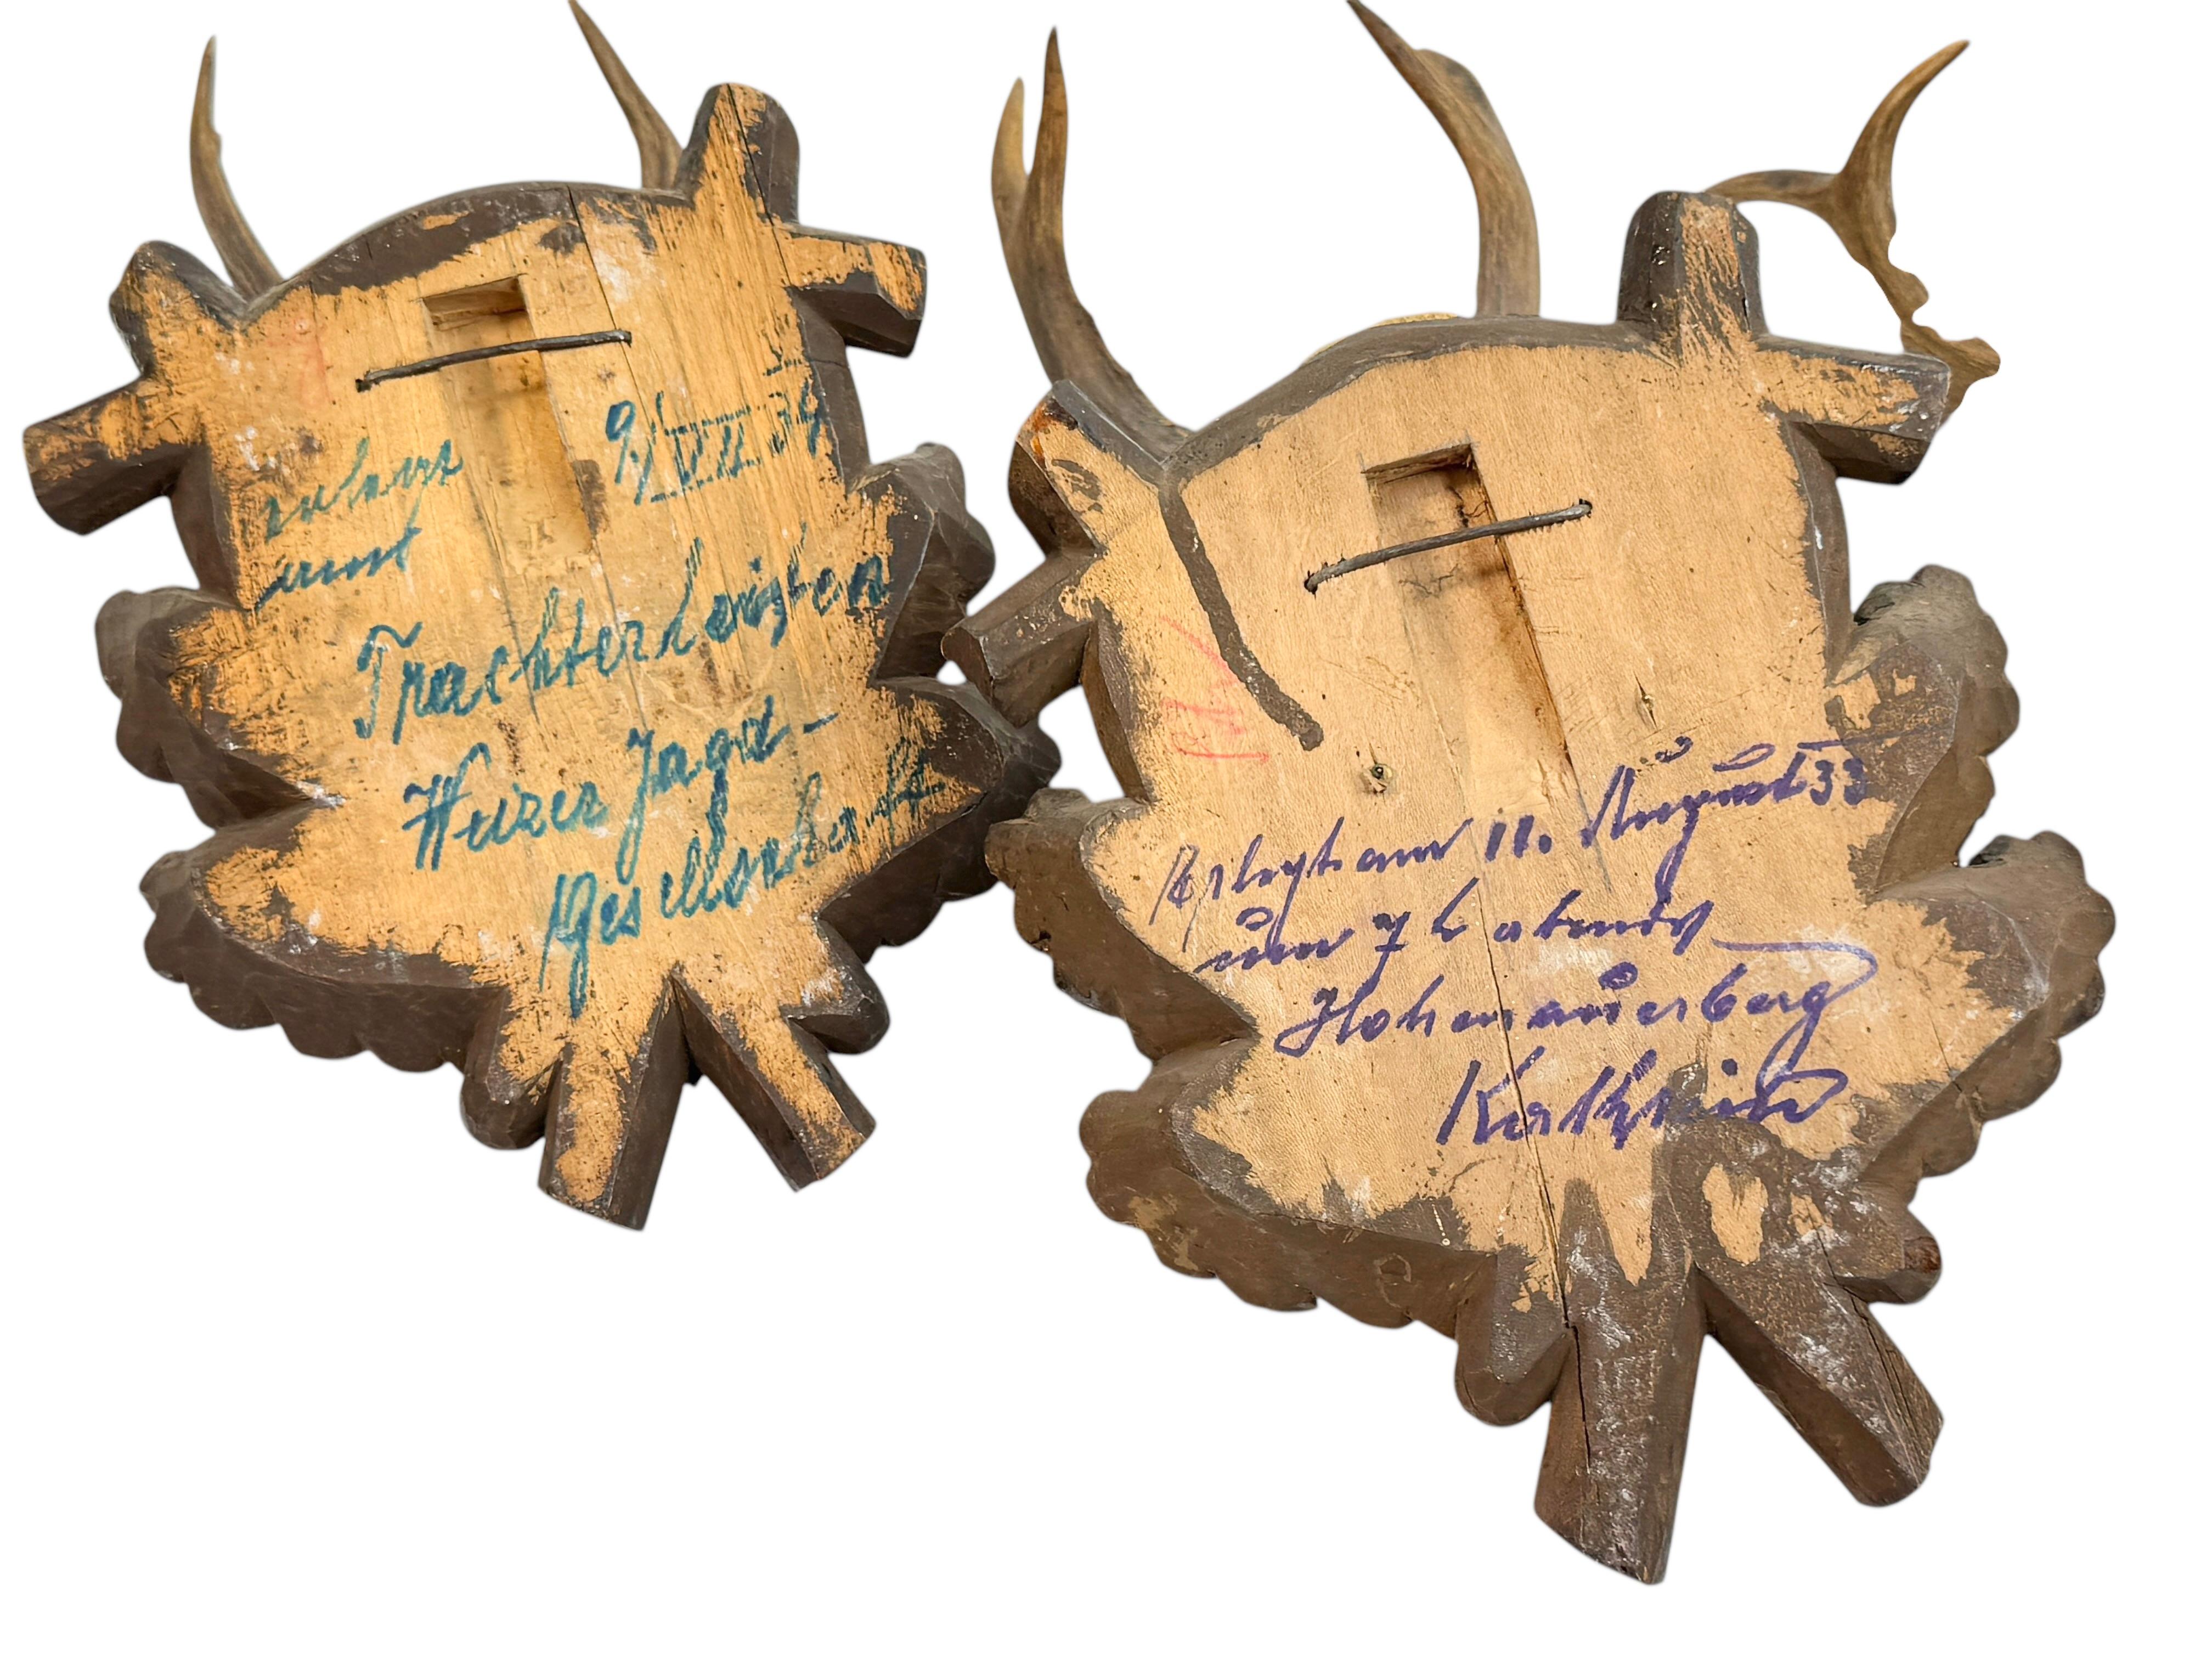 erlegt 9/VII 34
am
Trachterleiten
Weizer Jagd-
gesellschaft
Erlegt am 11. August 33
um 7 h abends
Hohenauerberg